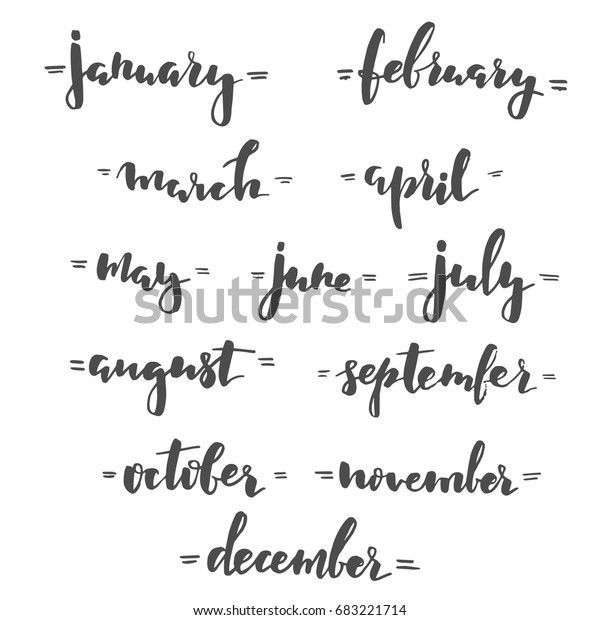 =january=
=february=
=march=
=april=
=may=
=june=
=july=
=august=
=september=
=october=
=november=
=december=
shutterstock
www.shutterstock.com · 683221714